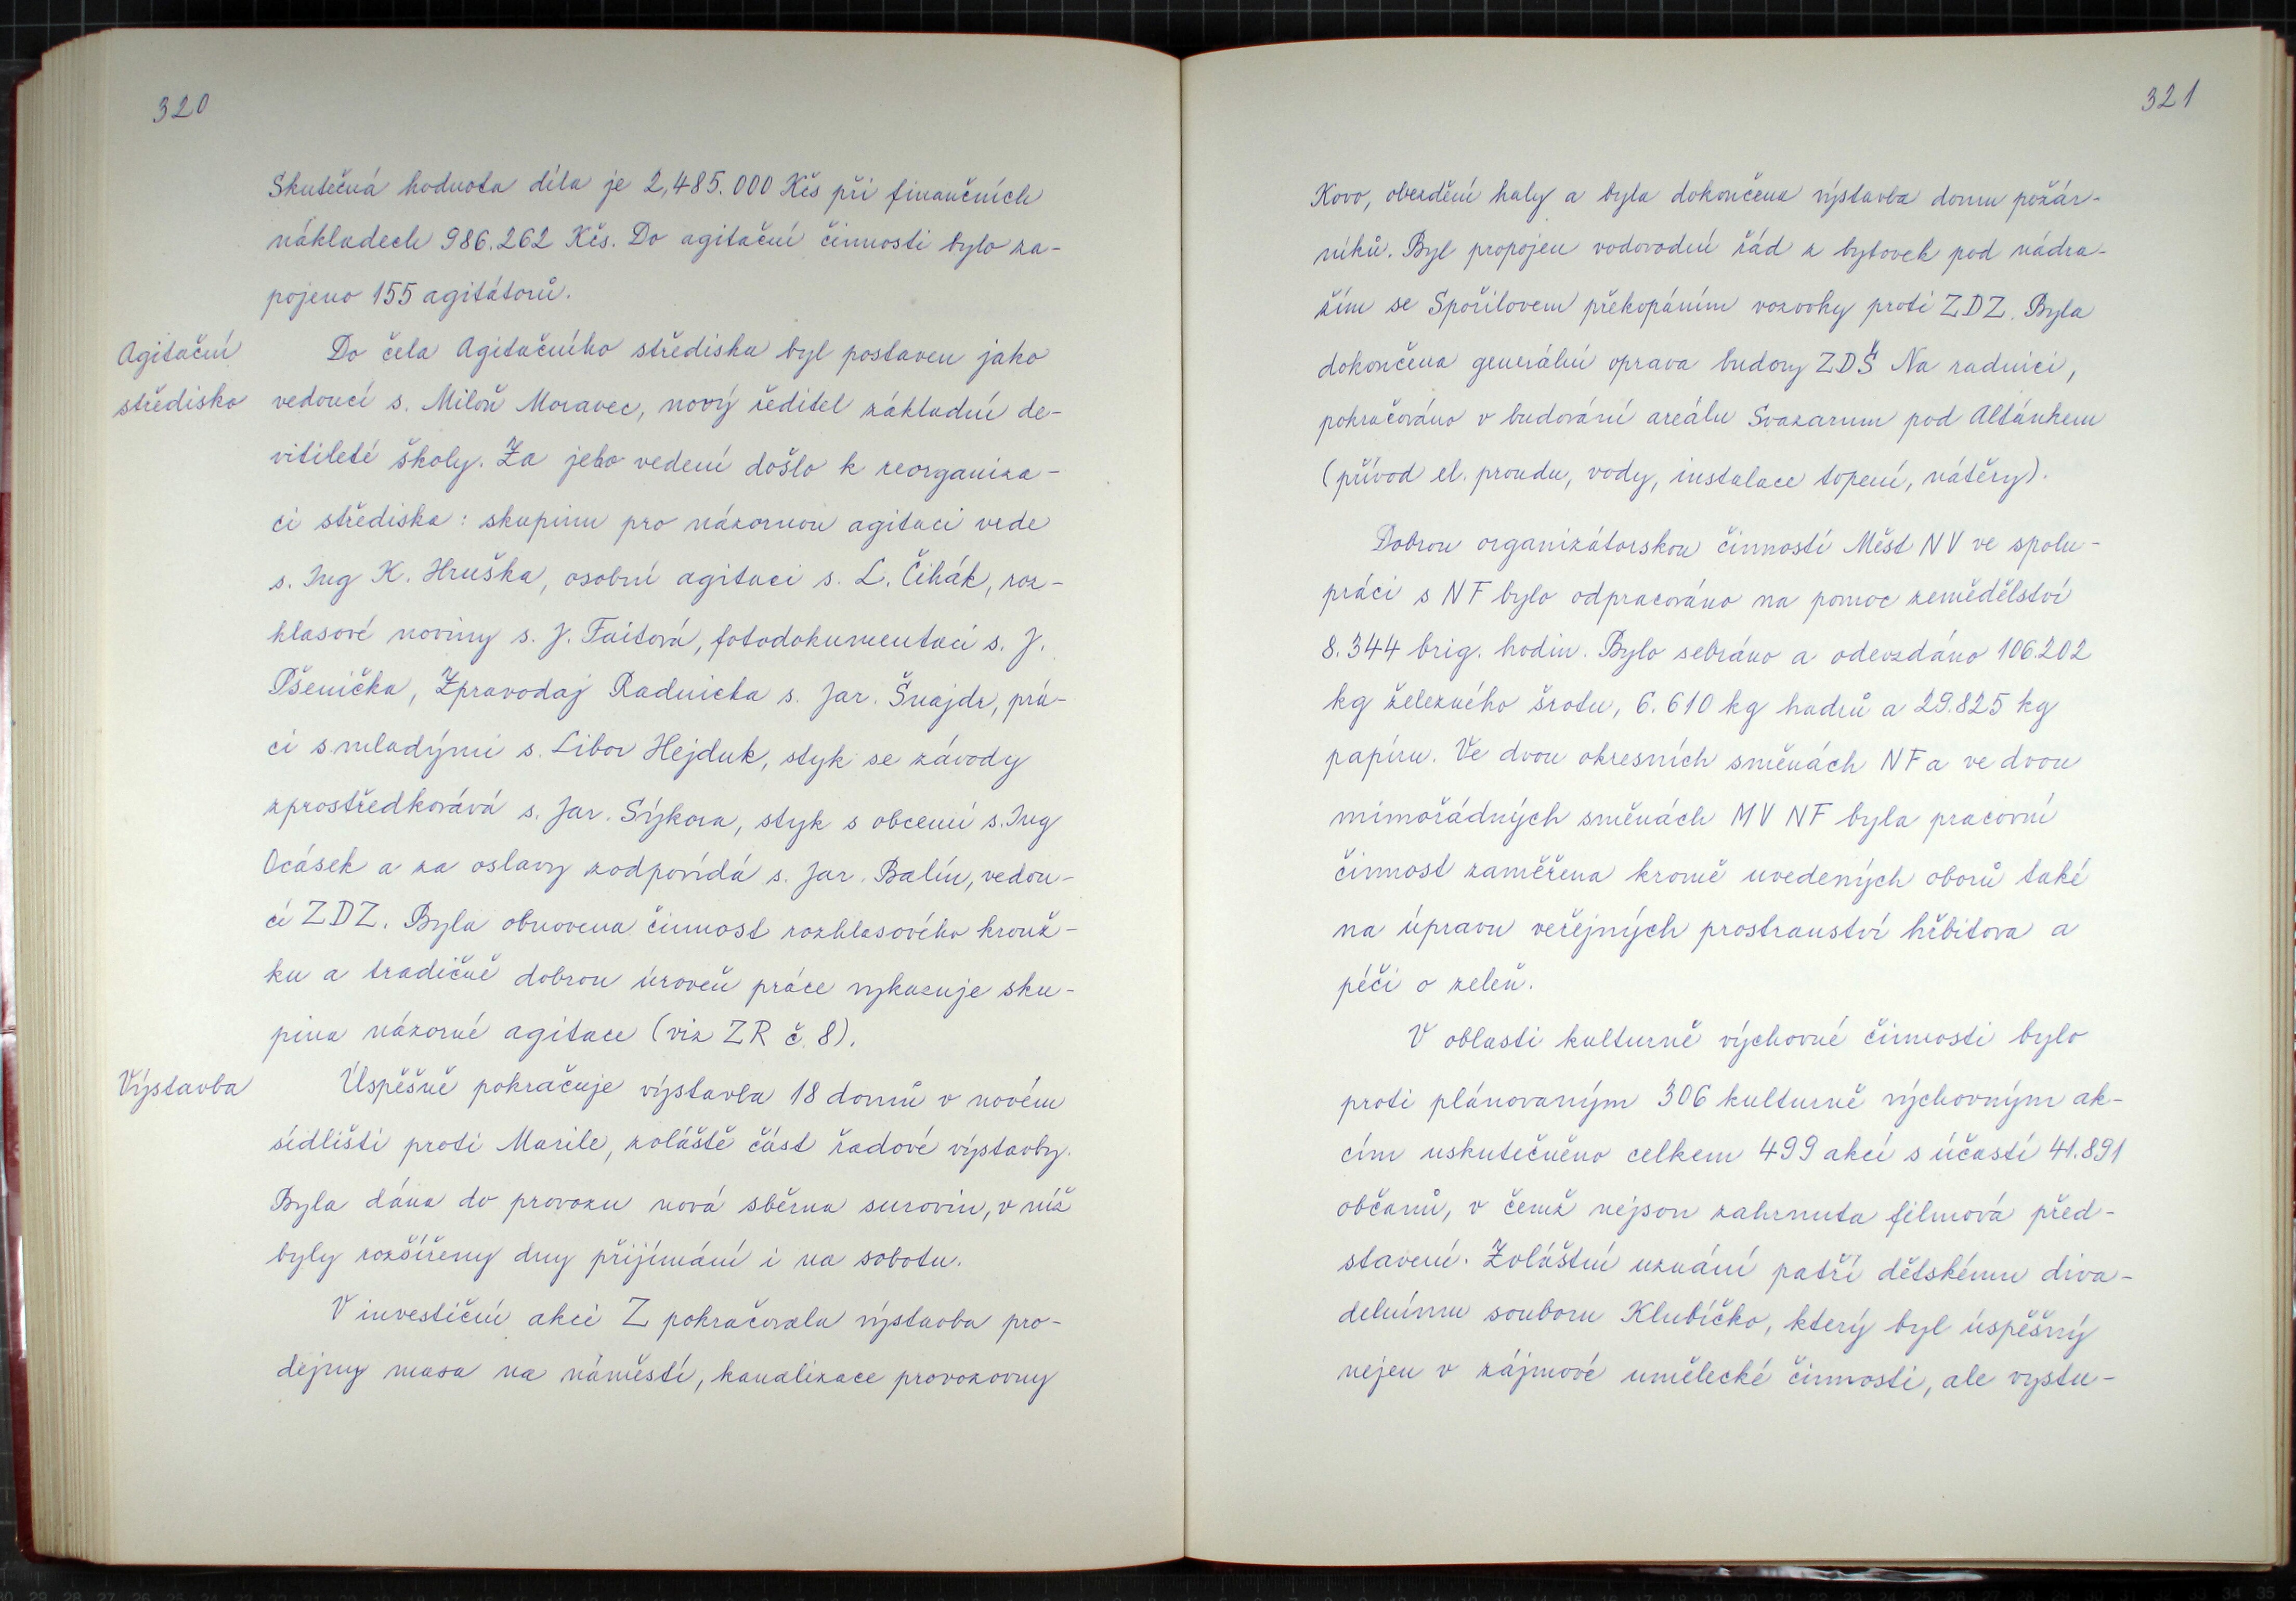 320
Skutečná hodnota díla je 2,485.000 Kčs při finančních
nákladech 986.262 Kčs. Do agitační činnosti bylo za-
pojeno 155 agitátorů.
Agitační
středisko
Do čela Agitačního střediska byl postaven jako
vedoucí s. Miloň Moravec, nový ředitel základní de-
vítileté školy. Za jeho vedení došlo k reorganiza-
ci střediska: skupinu pro názornou agitaci vede
s. Ing K. Hruška, osobní agitaci s. L. Čihák, roz-
hlasové noviny s. J. Faitová, fotodokumentaci s. J.
Pšenička, Zpravodaj Radnicka s. Jar. Šnajdr, prá-
ci s mladými s. Libor Hejduk, styk se závody
zprostředkovává s. Jar. Sýkora, styk s obcemi s. Ing
Ocásek a za oslavy zodpovídá s. Jar. Balín, vedou-
cí ZDZ. Byla obnovena činnost rozhlasového krouž-
ku a tradičně dobrou úroveň práce vykazuje sku-
pina názorné agitace (viz ZR č. 8).
Výstavba
Úspěšně pokračuje výstavba 18 domů v novém
sídlišti proti Marile, zvláště část řadové výstavby.
Byla dána do provozu nová sběrna surovin, v níž
byly rozšířeny dny přijímání i na sobotu.
V investiční akci Z pokračovala výstavba pro-
dejny masa na náměstí, kanalizace provozovny
321
Kovo, obezdění haly a byla dokončena výstavba domu požár-
níků. Byl propojen vodovodní řád z bytovek pod nádra-
žím se Spořilovem překopáním vozovky proti ZDZ. Byla
dokončena generální oprava budovy ZDŠ Na radnici,
pokračováno v budování areálu Svazarmu pod Altánkem
(přívod el. proudu, vody, instalace topení, nátěry).
Dobrou organizátorskou činností Měst NV ve spolu-
práci s NF bylo odpracováno na pomoc zemědělství
8.344 brig. hodin. Bylo sebráno a odevzdáno 106.202
kg železného šrotu, 6.610 kg hadrů a 29.825 kg
papíru. Ve dvou okresních směnách NF a ve dvou
mimořádných směnách MV NF byla pracovní
činnost zaměřena kromě uvedených oborů také
na úpravu veřejných prostranství hřbitova a
péči o zeleň.
V oblasti kulturně výchovné činnosti bylo
proti plánovaným 306 kulturně výchovným ak-
cím uskutečněno celkem 499 akcí s účastí 41.891
občanů, v čemž nejsou zahrnuta filmová před-
stavení. Zvláštní uznání patří dětskému diva-
delnímu souboru Klubíčko, který byl úspěšný
nejen v zájmové umělecké činnosti, ale vystu-